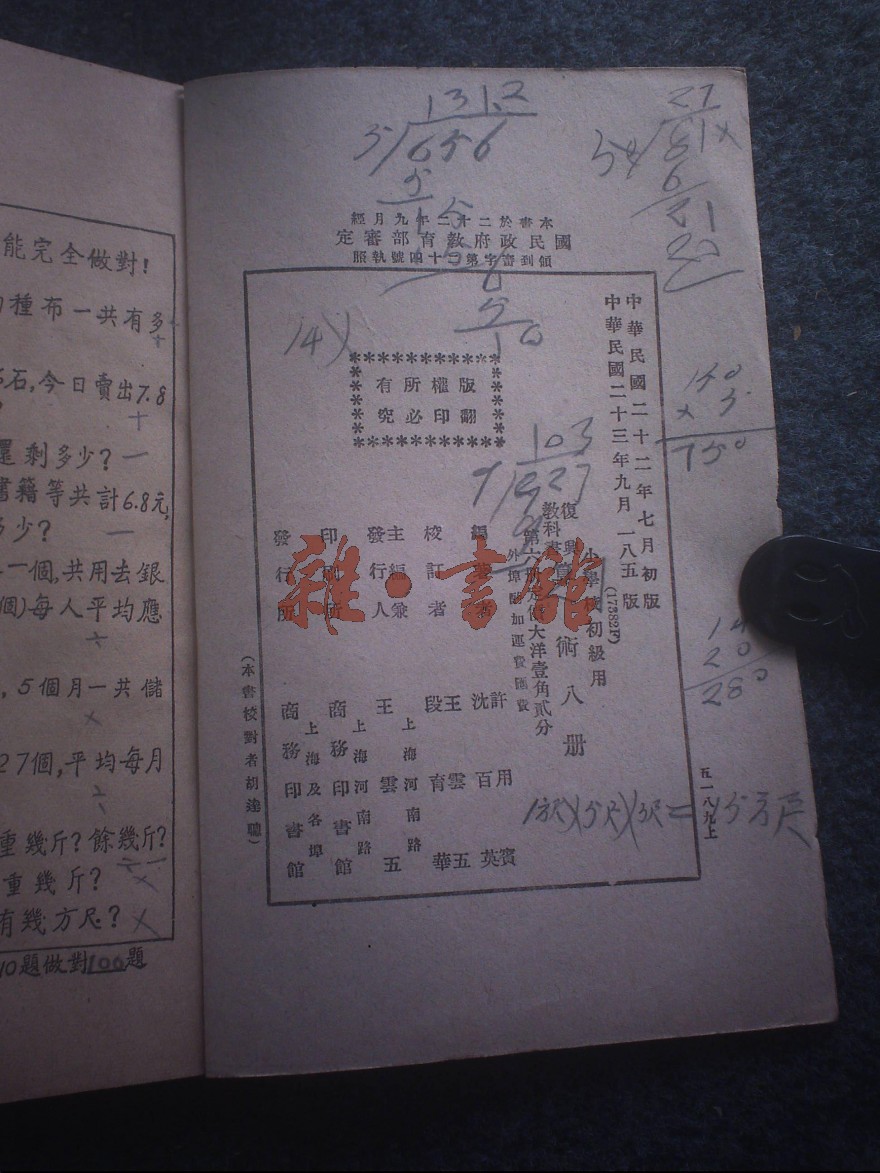 能完全做對!
種布一共有多
石,今日賣出7.8
還剩多少?
書籍等共計6.8元,
多少?
一個,共用去銀
個)每人平均應
,5個月一共儲
27個,平均每月
重幾斤?餘幾斤?
重幾斤?
有幾方尺?
10題做對100題
131.2
5 656
5
15
6
5
10
27
81
6
21
本書於二十二年九月經
國民政府教育部審定
領到審字第二十四號執照
14
版權所有
翻印必究
150
× 5
750
103
9 927
9
14
20
280
中華民國二十二年七月初版
中華民國二十三年九月一八五版
(17382F)
小學校初級用
復興
教科書
術八册
第六册定價大洋壹角貳分
外埠酌加運費匯費
編著者 許用賓 沈百英
校訂者 王雲五 段育華
主編兼發行人 王雲五
上海河南路
印刷所 商務印書館
上海河南路
發行所 商務印書館
上海及各埠
(本書校對者胡達聰)
五一八九上